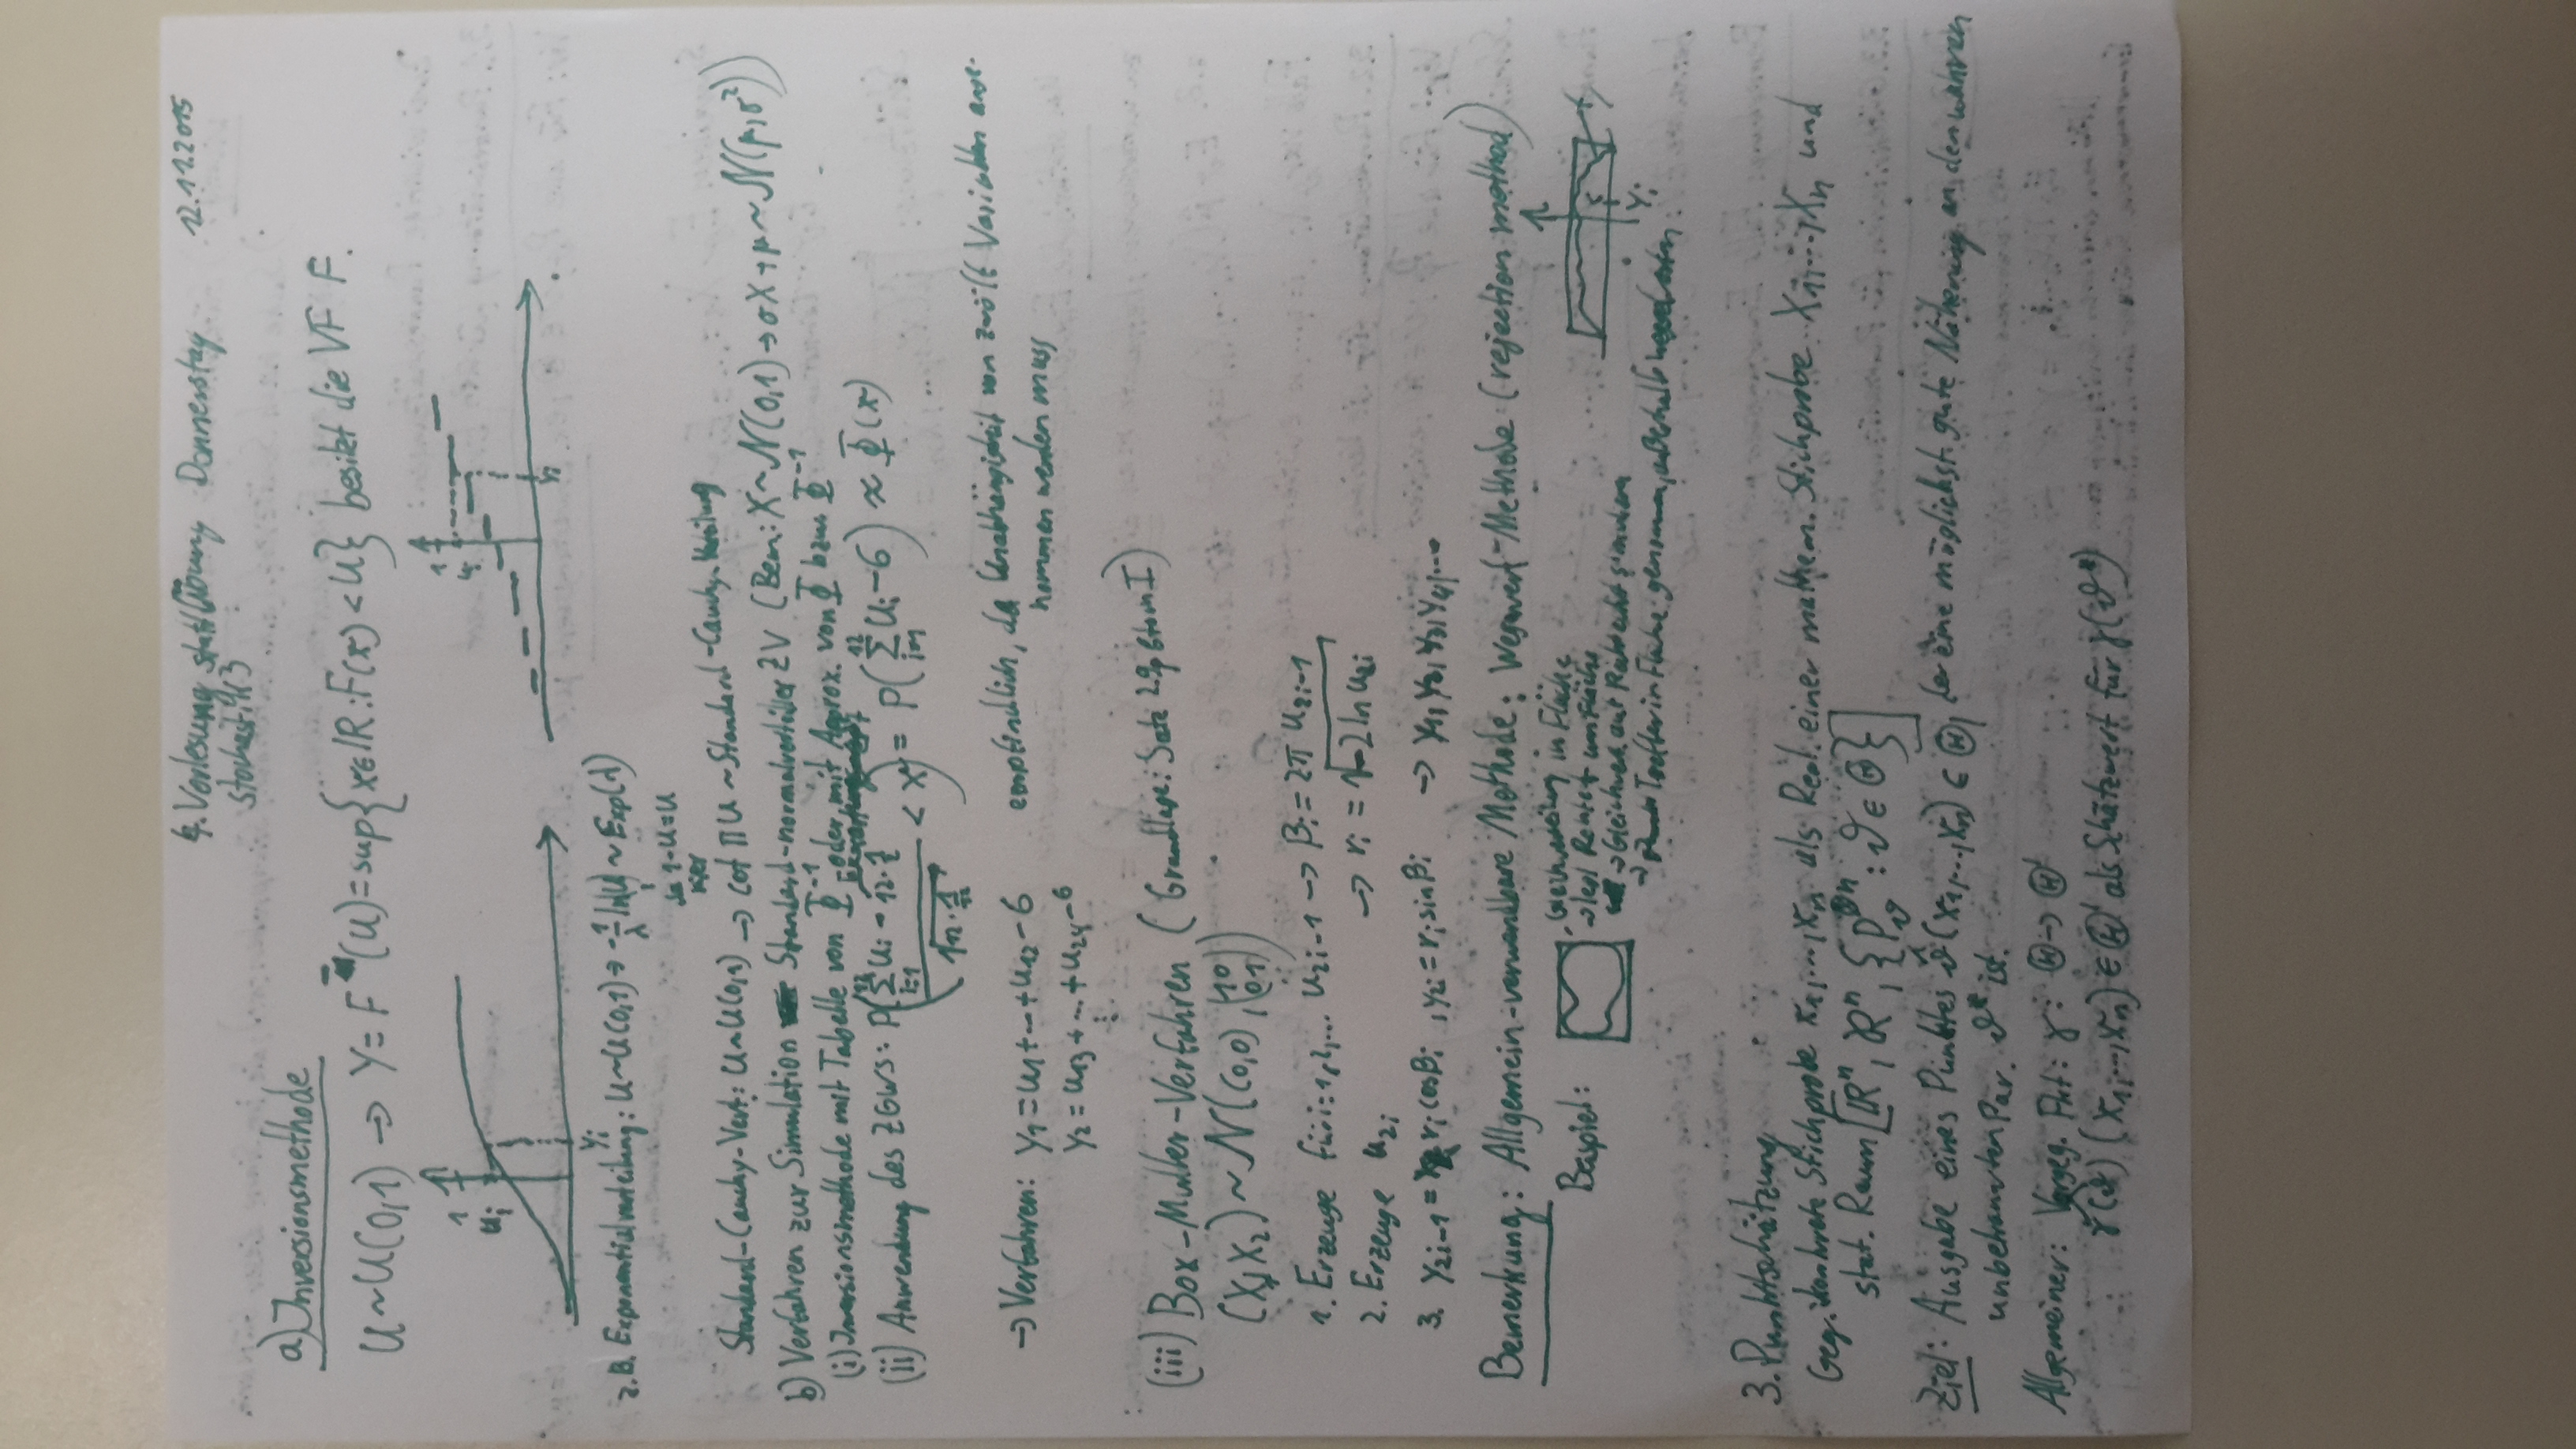 4. Vorlesung statt Übung Donnerstag 12.11.2015
Stochastik 3
a) Inversionsmethode
U ~ U(0,1) → Y = F⁻(U) = sup{x∈ℝ : F(x) < U} besitzt die VF F.
1 1
u_i
y_i y_i
z.B. Exponentialverteilung: U~U(0,1) → -1/λ ln(U) ~ Exp(λ)
da 1-U=U
hier
Standard-Cauchy-Vert: U~U(0,1) → cot πU ~ Standard-Cauchy-Verteilung
b) Verfahren zur Simulation Standard-normalverteilter ZV (Bem: X~N(0,1) → σX+μ ~ N(μ,σ²))
(i) Inversionsmethode mit Tabelle von Φ⁻¹ oder mit Approx. von Φ bzw. Φ⁻¹
(ii) Anwendung des ZGWS: P((∑_{i=1}^{12} U_i - 12·1/2)/√(12·1/12) < x) = P(∑_{i=1}^{12} U_i - 6) ≈ Φ(x)
→ Verfahren: y₁ = u₁+...+u₁₂-6 empfindlich, da Unabhängigkeit von zwölf Variablen ange-
y₂ = u₁₃+...+u₂₄-6 nommen werden muss
⋮
(iii) Box-Muller-Verfahren (Grundlage: Satz 2.9, I)
(X₁,X₂) ~ N((0,0), (1 0
0 1))
1. Erzeuge für i=1,2,... u_{2i-1} → β_i = 2π u_{2i-1}
2. Erzeuge u_{2i} → r_i = √(-2 ln u_{2i})
3. y_{2i-1} = r_i cos β_i , y_{2i} = r_i sin β_i → y₁, y₂, y₃, y₄,...
Bemerkung: Allgemein-verwendbare Methode: Wegwerf-Methode (rejection method)
Beispiel: Gleichverteilung in Fläche
→ legt Rechteck um Fläche
→ Gleichvert. auf Rechteck simulieren
→ Treffer in Fläche genommen, außerhalb
y_i
3. Punktschätzung
Geg.: konkrete Stichprobe x₁,...,x_n als Real. einer mathem. Stichprobe X₁,...,X_n und
stat. Raum [ℝⁿ, 𝓡ⁿ, {P_ϑ^{⊗n} : ϑ ∈ Θ}]
Ziel: Ausgabe eines Punktes ϑ̂(x₁,...,x_n) ∈ Θ, der eine möglichst gute Näherung an den wahren
unbekannten Par. ϑ* ist.
Allgemeiner: Vorgeg. Fkt: γ: Θ → Θ'
γ̂(ϑ)(x₁,...,x_n) ∈ Θ' als Schätzwert für γ(ϑ*)